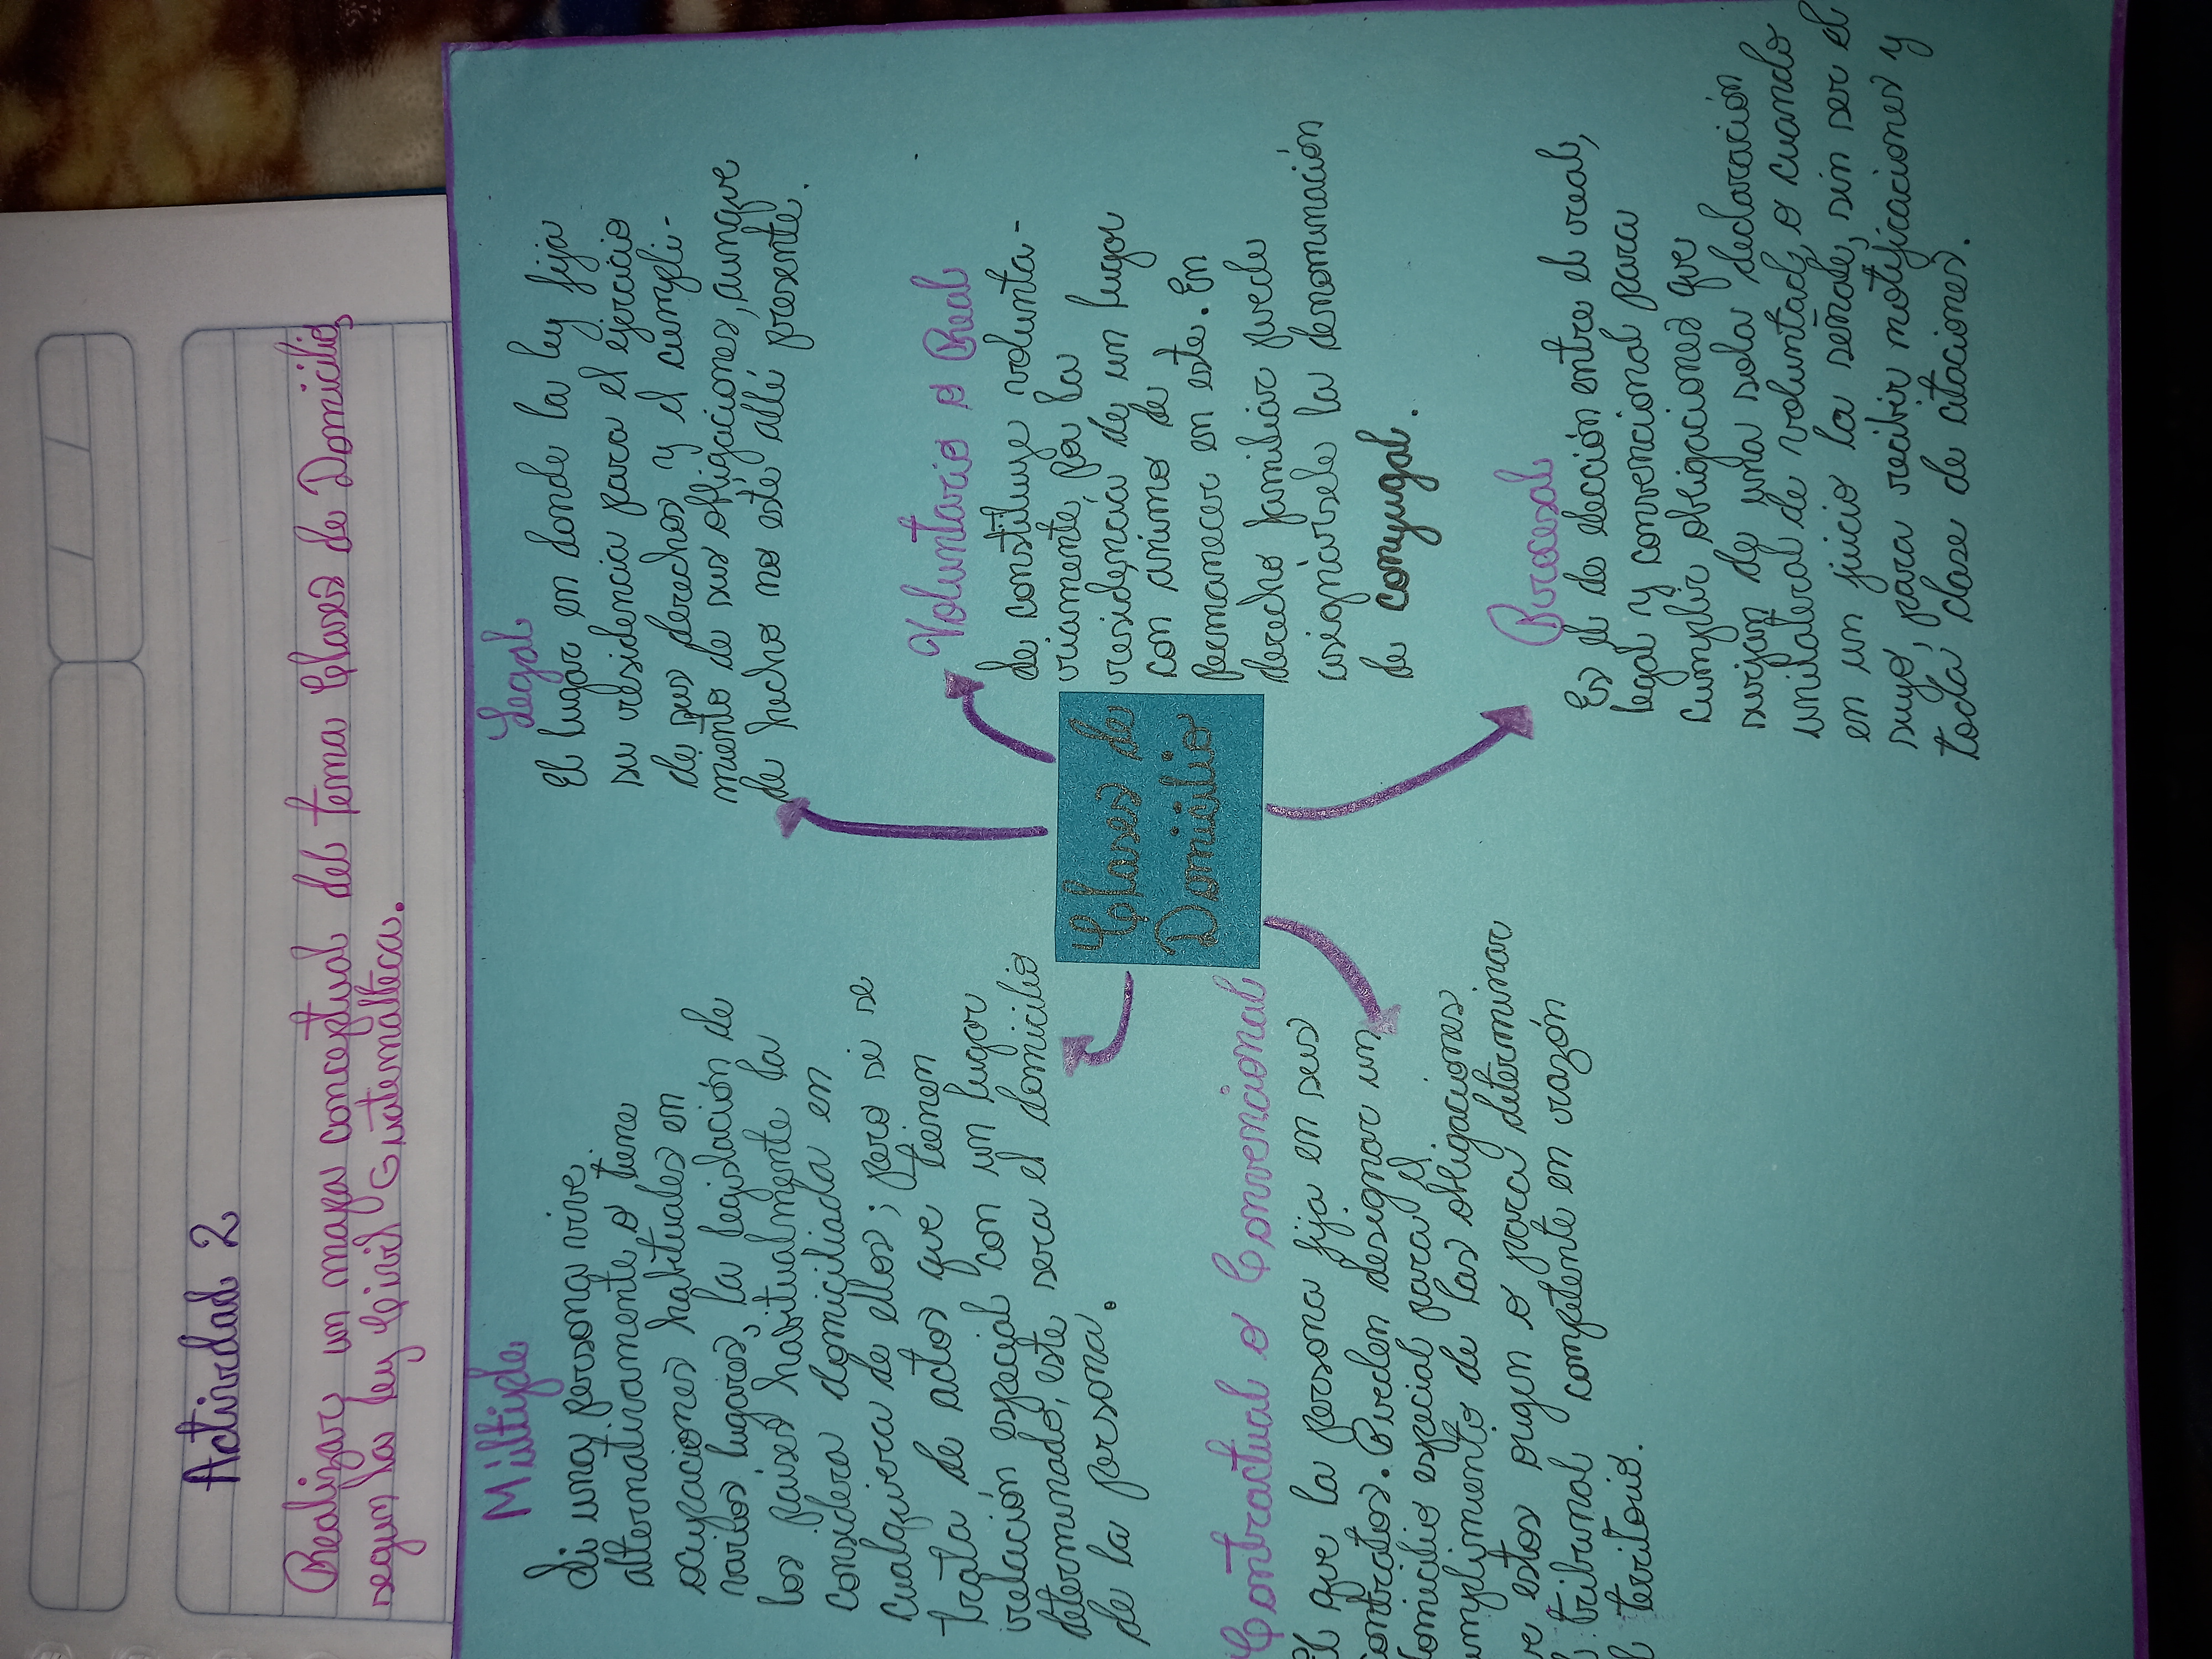 Actividad 2
Realizar un mapa conceptual del tema Clases de Domicilio,
segun la ley Civil Guatemalteca.
Múltiple
Si una persona vive
alternativamente o tiene
ocupaciones habituales en
varios lugares, la legislación de
los países habitualmente la
considera domiciliada en
cualquiera de ellos; pero si se
trata de actos que tienen
relación especial con un lugar
determinado, este sera el domicilio
de la persona.
Legal
El lugar en donde la ley fija
su residencia para el ejercicio
de sus derechos y el cumpli-
miento de sus obligaciones, aunque
de hecho no esté allí presente.
Voluntario o Real
se constituye volunta-
riamente, por la
residencia de un lugar
con animo de
permanecer en este. En
derecho familiar puede
asignársele la denominación
de conyugal.
Clases de
Domicilio
Contractual o Convencional
El que la persona fija en sus
contratos. Pueden designar un
domicilio especial para el
cumplimiento de las obligaciones
que estos origen o para determinar
el tribunal competente en razón
el territorio.
Procesal
Es el de elección entre el real,
legal y convencional para
cumplir obligaciones que
surjan de una sola declaración
unilateral de voluntad, o cuando
en un juicio la señale, sin ser el
suyo, para recibir notificaciones y
toda clase de citaciones.